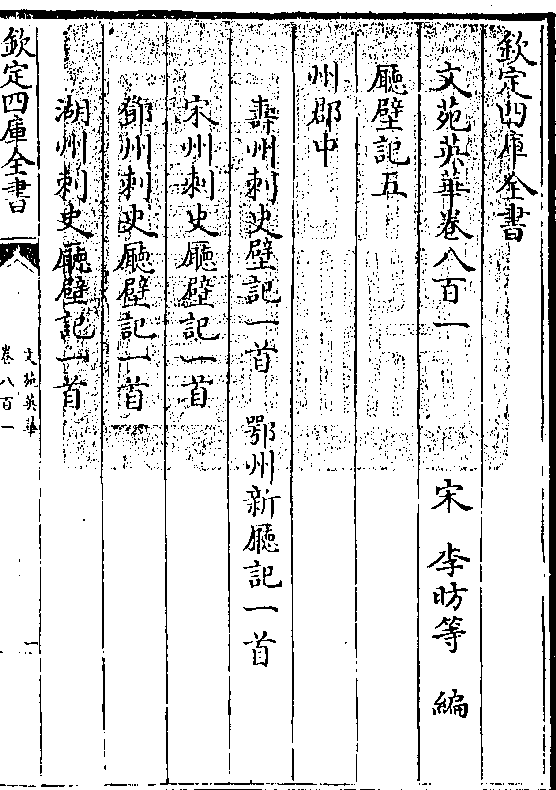 欽定四庫全書
文苑英華卷八百一
宋 李昉等 編
廳壁記五
州郡中
壽州刺史壁記一首 鄂州新廳記一首
宋州刺史廳壁記一首
鄧州刺史廳壁記一首
湖州刺史廳壁記一首
欽定四庫全書
文苑英華
卷八百一
一